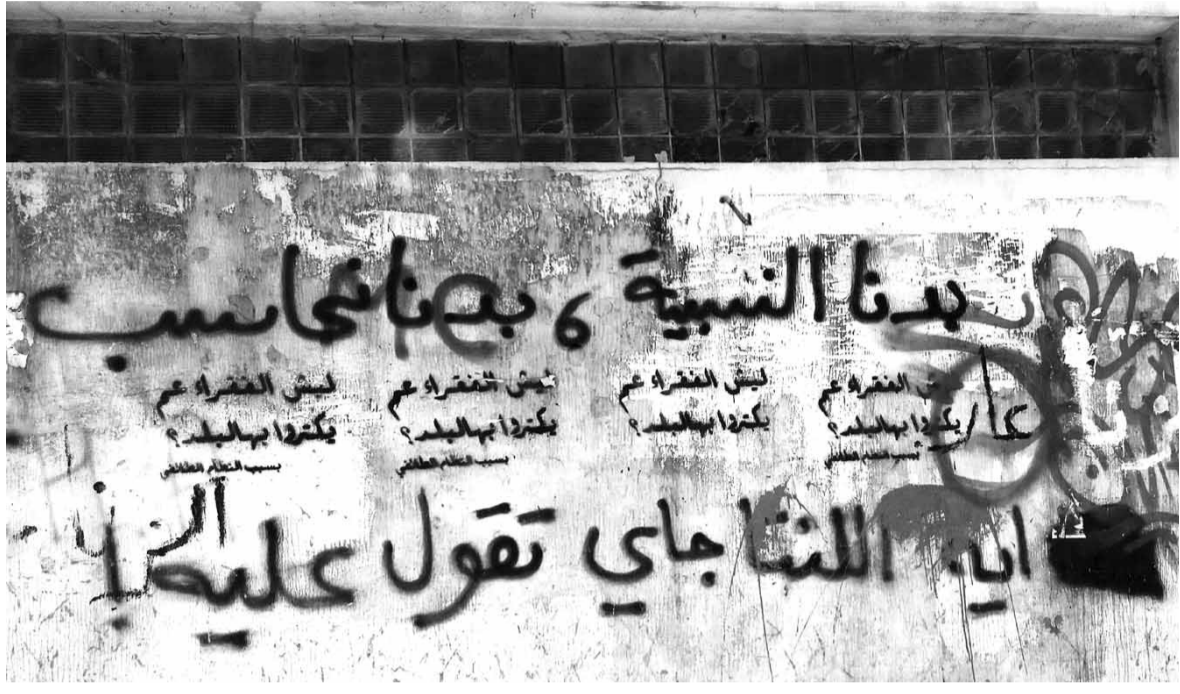 بدنا النسبية، بدنا نحاسب
ليش الفقراء عم
يكتروا بهالبلد؟
بسبب النظام الطائفي
ليش الفقراء عم
يكتروا بهالبلد؟
بسبب النظام الطائفي
ليش الفقراء عم
يكتروا بهالبلد؟
الفقراء عم
يكتروا بهالبلد؟
بسبب النظام الطائفي
جاي تقول عليه!